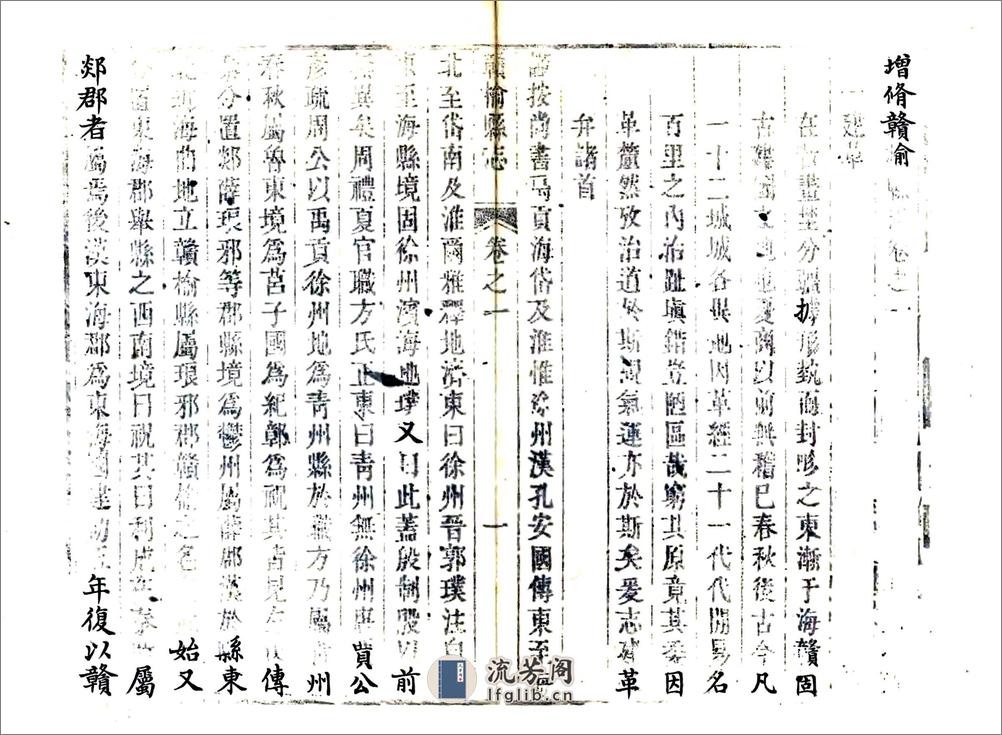 增脩贛榆 卷之一
建革
在 畫埜分疆據形勢而封 之東漸于海贛固
古 以前無稽已春秋後古今凡
一十二城城各異地因革經二十一代代開異名
百里之內治趾塡錯豈陋區哉窮其原竟其委因
革釐然攷治道於斯覘氣運亦於斯矣爰志建革
弁諸首
謹按尚書禹貢海岱及淮惟徐州漢孔安國傳東至海
贛榆縣志 卷之一 一
北至岱南及淮爾雅釋地濟東曰徐州晉郭璞注自
東至海縣境固徐州濱海地璞又曰此蓋殷制殷以前
無異矣周禮夏官職方氏正東曰青州無徐州唐賈公
彥疏周公以禹貢徐州地為青州縣於職方乃屬 州
春秋屬魯東境為莒子國為紀鄣為祝其 見左 傳
秦分置郯薛琅邪等郡縣境為鬱州屬薛郡漢於縣東
北 海曲地立贛榆縣屬琅邪郡贛榆之名 始又
分置東海郡舉縣之西南境曰祝其曰利成 屬
郯郡者屬焉後漢東海郡為東海國建初五年復以贛
流芳阁
lfglib.cn